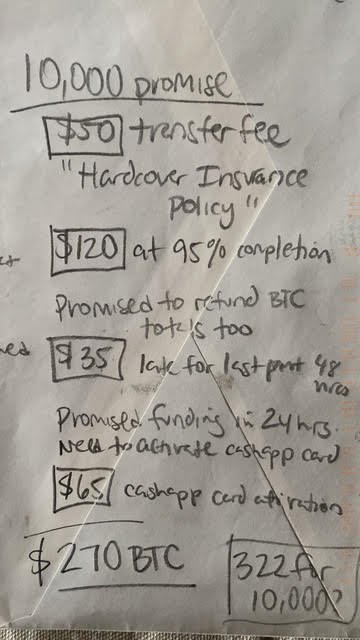 10,000 promise
$50 transfer fee
"Hardcover Insurance
Policy"
$120 at 95% completion
Promised to refund BTC
totals too
$35 late for last part 48
hrs
Promised funding in 24 hrs.
Need to activate cashapp card
$65 cashapp card
$270 BTC
322 for
10,000?